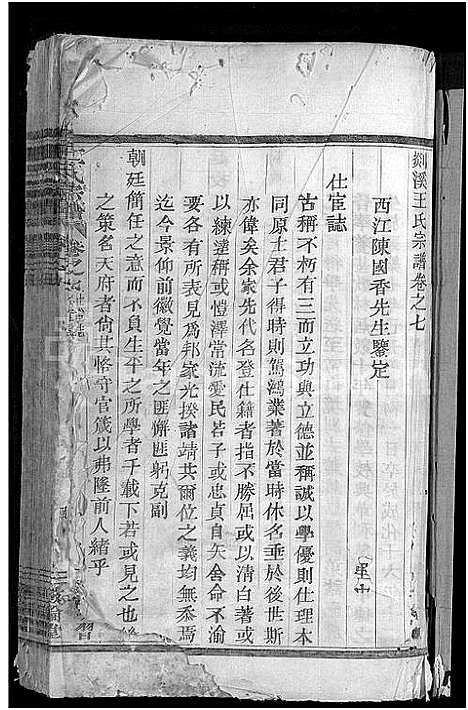 剡溪王氏宗譜卷之七
西江陳國香先生鑒定
仕宦誌
古稱不朽有三而立功與立德並稱誠以學優則仕理本
同原士君子得時則駕鴻業著於當時休名垂於後世斯
亦偉矣余家先代名登仕籍者指不勝屈或以清白著或
以練達稱或愷澤常流愛民若子或忠貞自矢舍命不渝
要各有所表見為邦家光揆諸靖共爾位之義均無忝焉
迄今景仰前徽覺當年之匪懈匪躬克副
朝廷簡任之意而不負生平之所學者千載下若或見之也後
之策名天府者尚其恪守官箴以弗墜前人緒乎